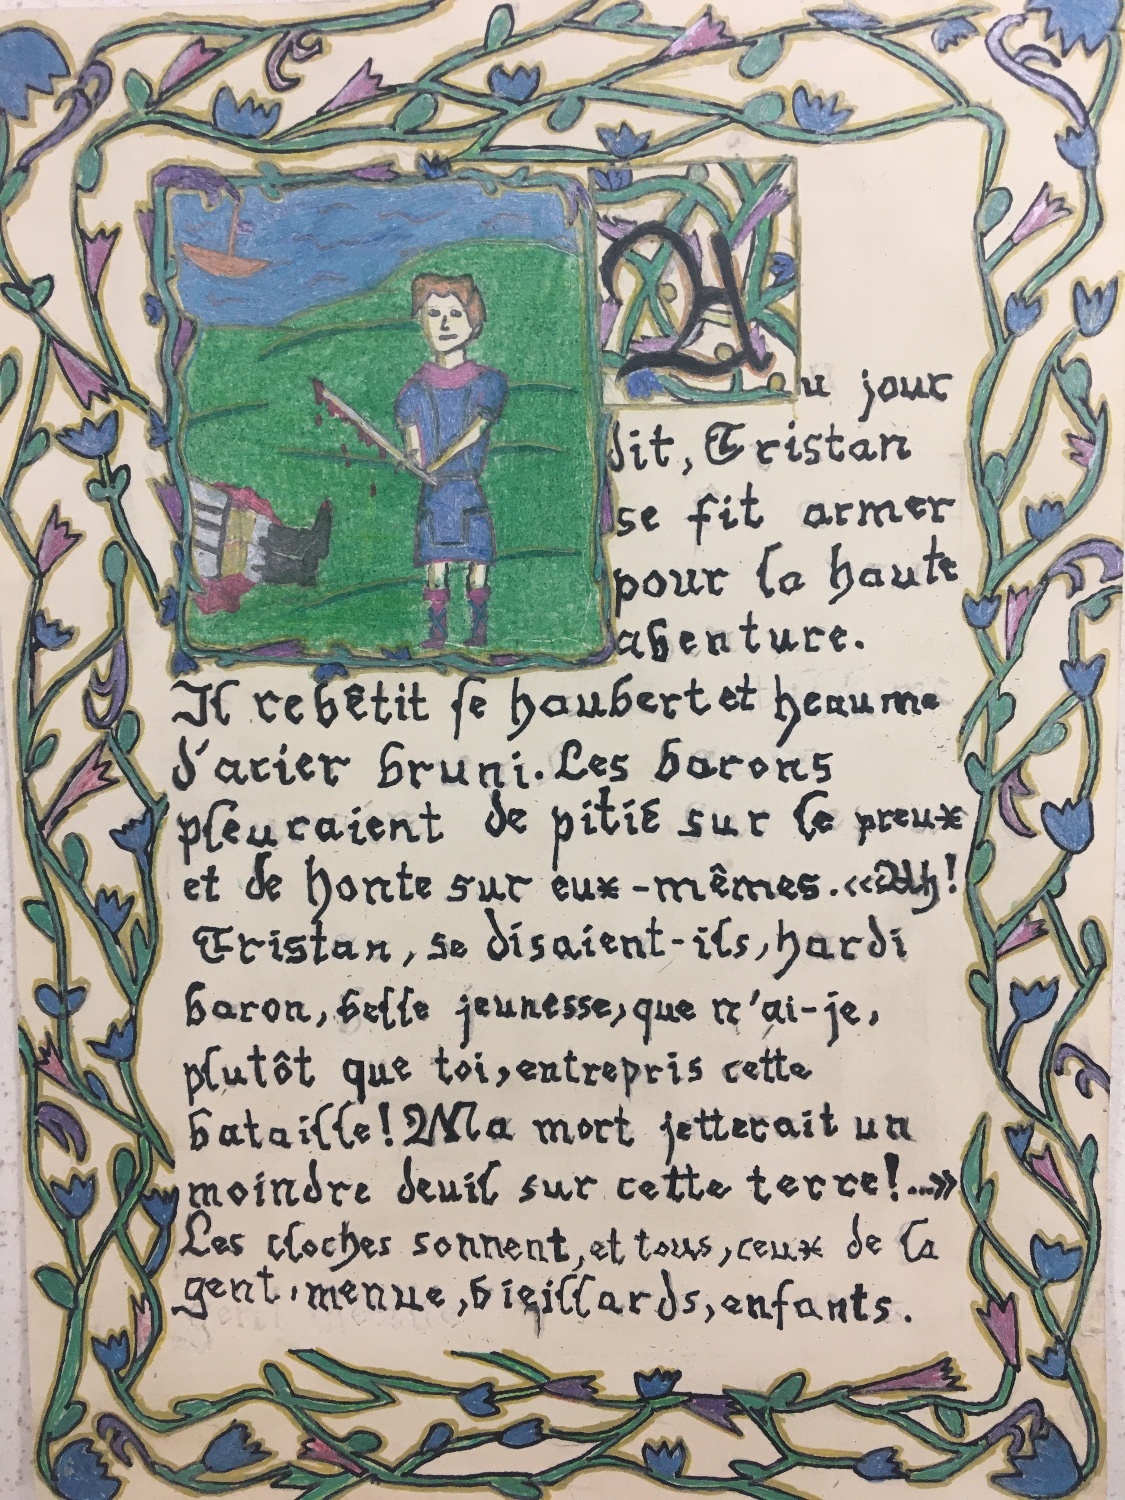 Au jour
dit, Tristan
se fit armer
pour la haute
aventure.
Il revêtit le haubert et heaume
d'acier bruni. Les barons
pleuraient de pitié sur le preux
et de honte sur eux-mêmes. «Ah!
Tristan, se disaient-ils, hardi
baron, belle jeunesse, que n'ai-je,
plutôt que toi, entrepris cette
bataille! Ma mort jetterait un
moindre deuil sur cette terre!...»
Les cloches sonnent, et tous, ceux de la
gent, menue, vieillards, enfants.